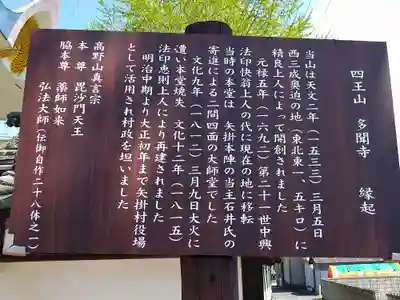 四王山 多聞寺 縁起
当山は天文二年(一五三三)三月五日
西三成奥迫の地(東北東一、五キロ)に
積良上人によって開創されました
元禄五年(一六九二)第二十一世中興
法印快翁上人の代に現在の地に移転
当時の本堂は 矢掛本陣の当主石井氏の
寄進による二間四面の大師堂でした
文化九年(一八一二)三月九日大火に
遭い本堂焼失 文化十二年(一八一五)
法印恵則上人により再建されました
明治中期より大正初年まで矢掛村役場
として活用され村政を担いました
高野山真言宗
本尊 毘沙門天王
脇本尊 薬師如来
弘法大師(伝御自作二十八体之一)